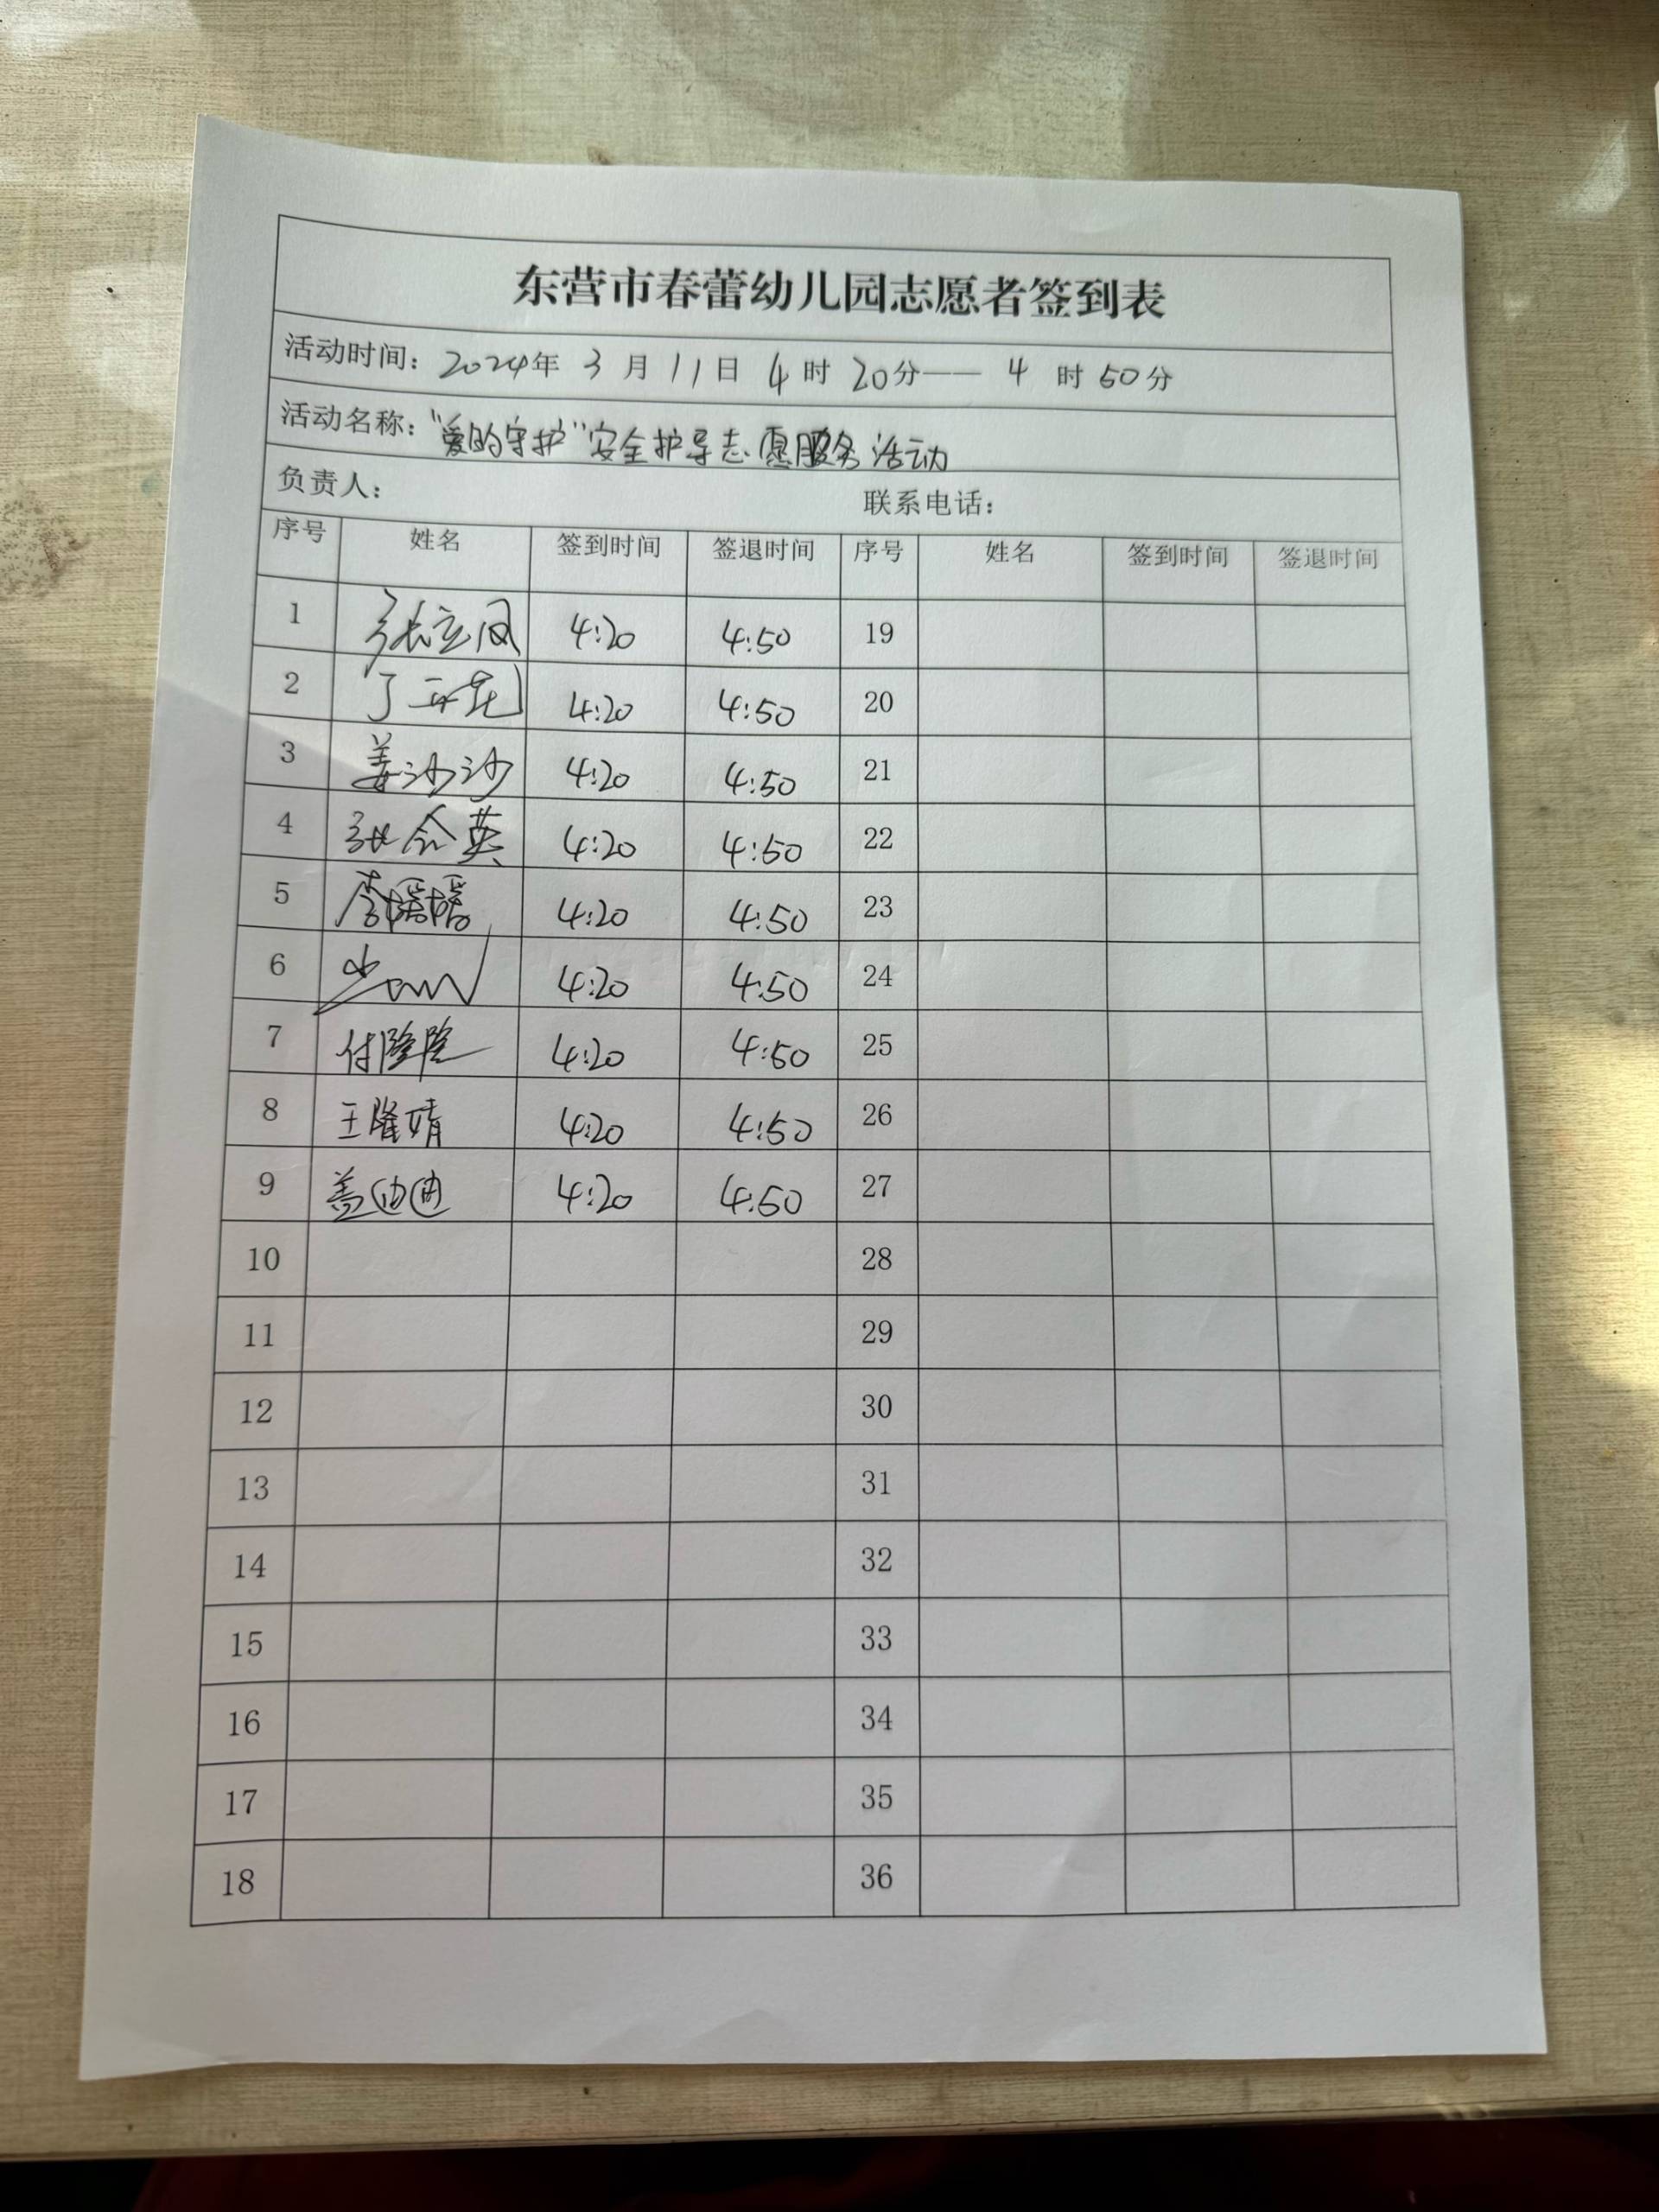 东营市春蕾幼儿园志愿者签到表
活动时间：2024年 3 月 11日 4 时 20分—— 4 时 50分
活动名称："爱的守护"安全护导志愿服务活动
负责人： 联系电话：
序号 姓名 签到时间 签退时间 序号 姓名 签到时间 签退时间
1 张立凤 4:20 4:50 19
2 4:20 4:50 20
3 姜沙沙 4:20 4:50 21
4 张令英 4:20 4:50 22
5 李媛媛 4:20 4:50 23
6 4:20 4:50 24
7 付隆隆 4:20 4:50 25
8 王隆婧 4:20 4:50 26
9 盖迪迪 4:20 4:50 27
10 28
11 29
12 30
13 31
14 32
15 33
16 34
17 35
18 36